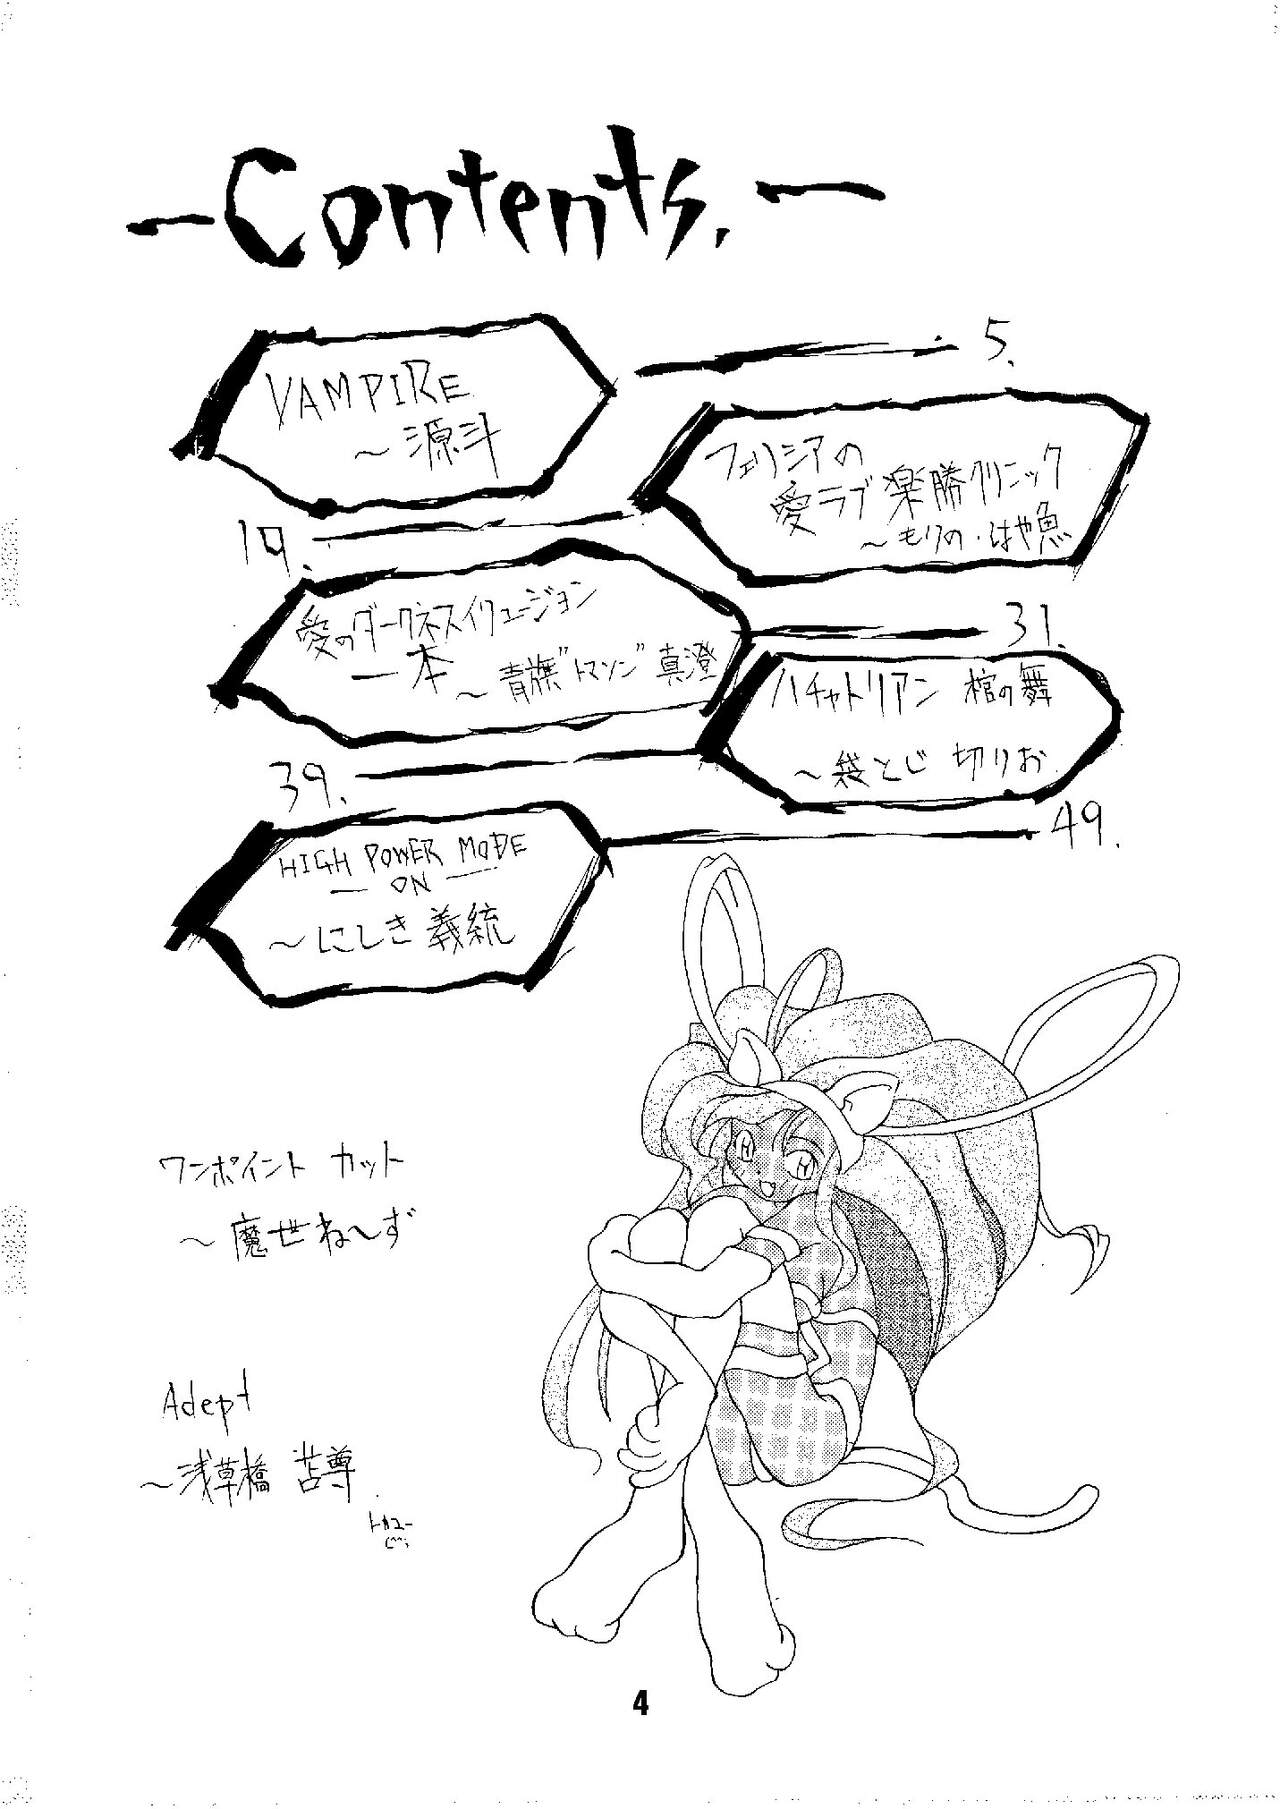 -Contents.-
VAMPIRE
~源斗
5.
フェリシアの
愛ラブ楽勝クリニック
~もりの・はや魚
19.
愛のダークネスイリュージョン
一本 ~青旗"トマソン"真澄
31.
ハチャトリアン 棺の舞
~袋とじ 切りお
39.
HIGH POWER MODE
-ON-
~にしき義統
49.
ワンポイント カット
~魔世ね~ず
Adept
~浅草橋 苫尊
4